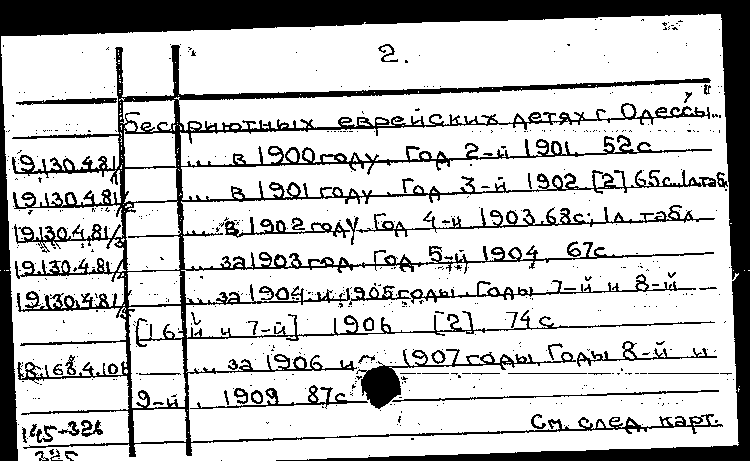 2.
бесприютных еврейских детях г. Одессы"...
19.130.4.81/1 ... в 1900 году. Год 2-й 1901. 52 с.
19.130.4.81/2 ... в 1901 году. Год 3-й 1902 [2] 65 с. 1 л. табл.
19.130.4.81/3 ... в 1902 году. Год 4-й 1903. 68 с; 1 л. табл.
19.130.4.81/4 ... за 1903 год. Год 5-й 1904. 67 с.
19.130.4.81/5 ... за 1904 и 1905 годы. Годы 7-й и 8-й
[16-й и 7-й] 1906 [2], 74 с.
18.168.4.101 ... за 1906 и 1907 годы. Годы 8-й и
9-й. 1909. 87 с
145-326 См. след. карт.
325